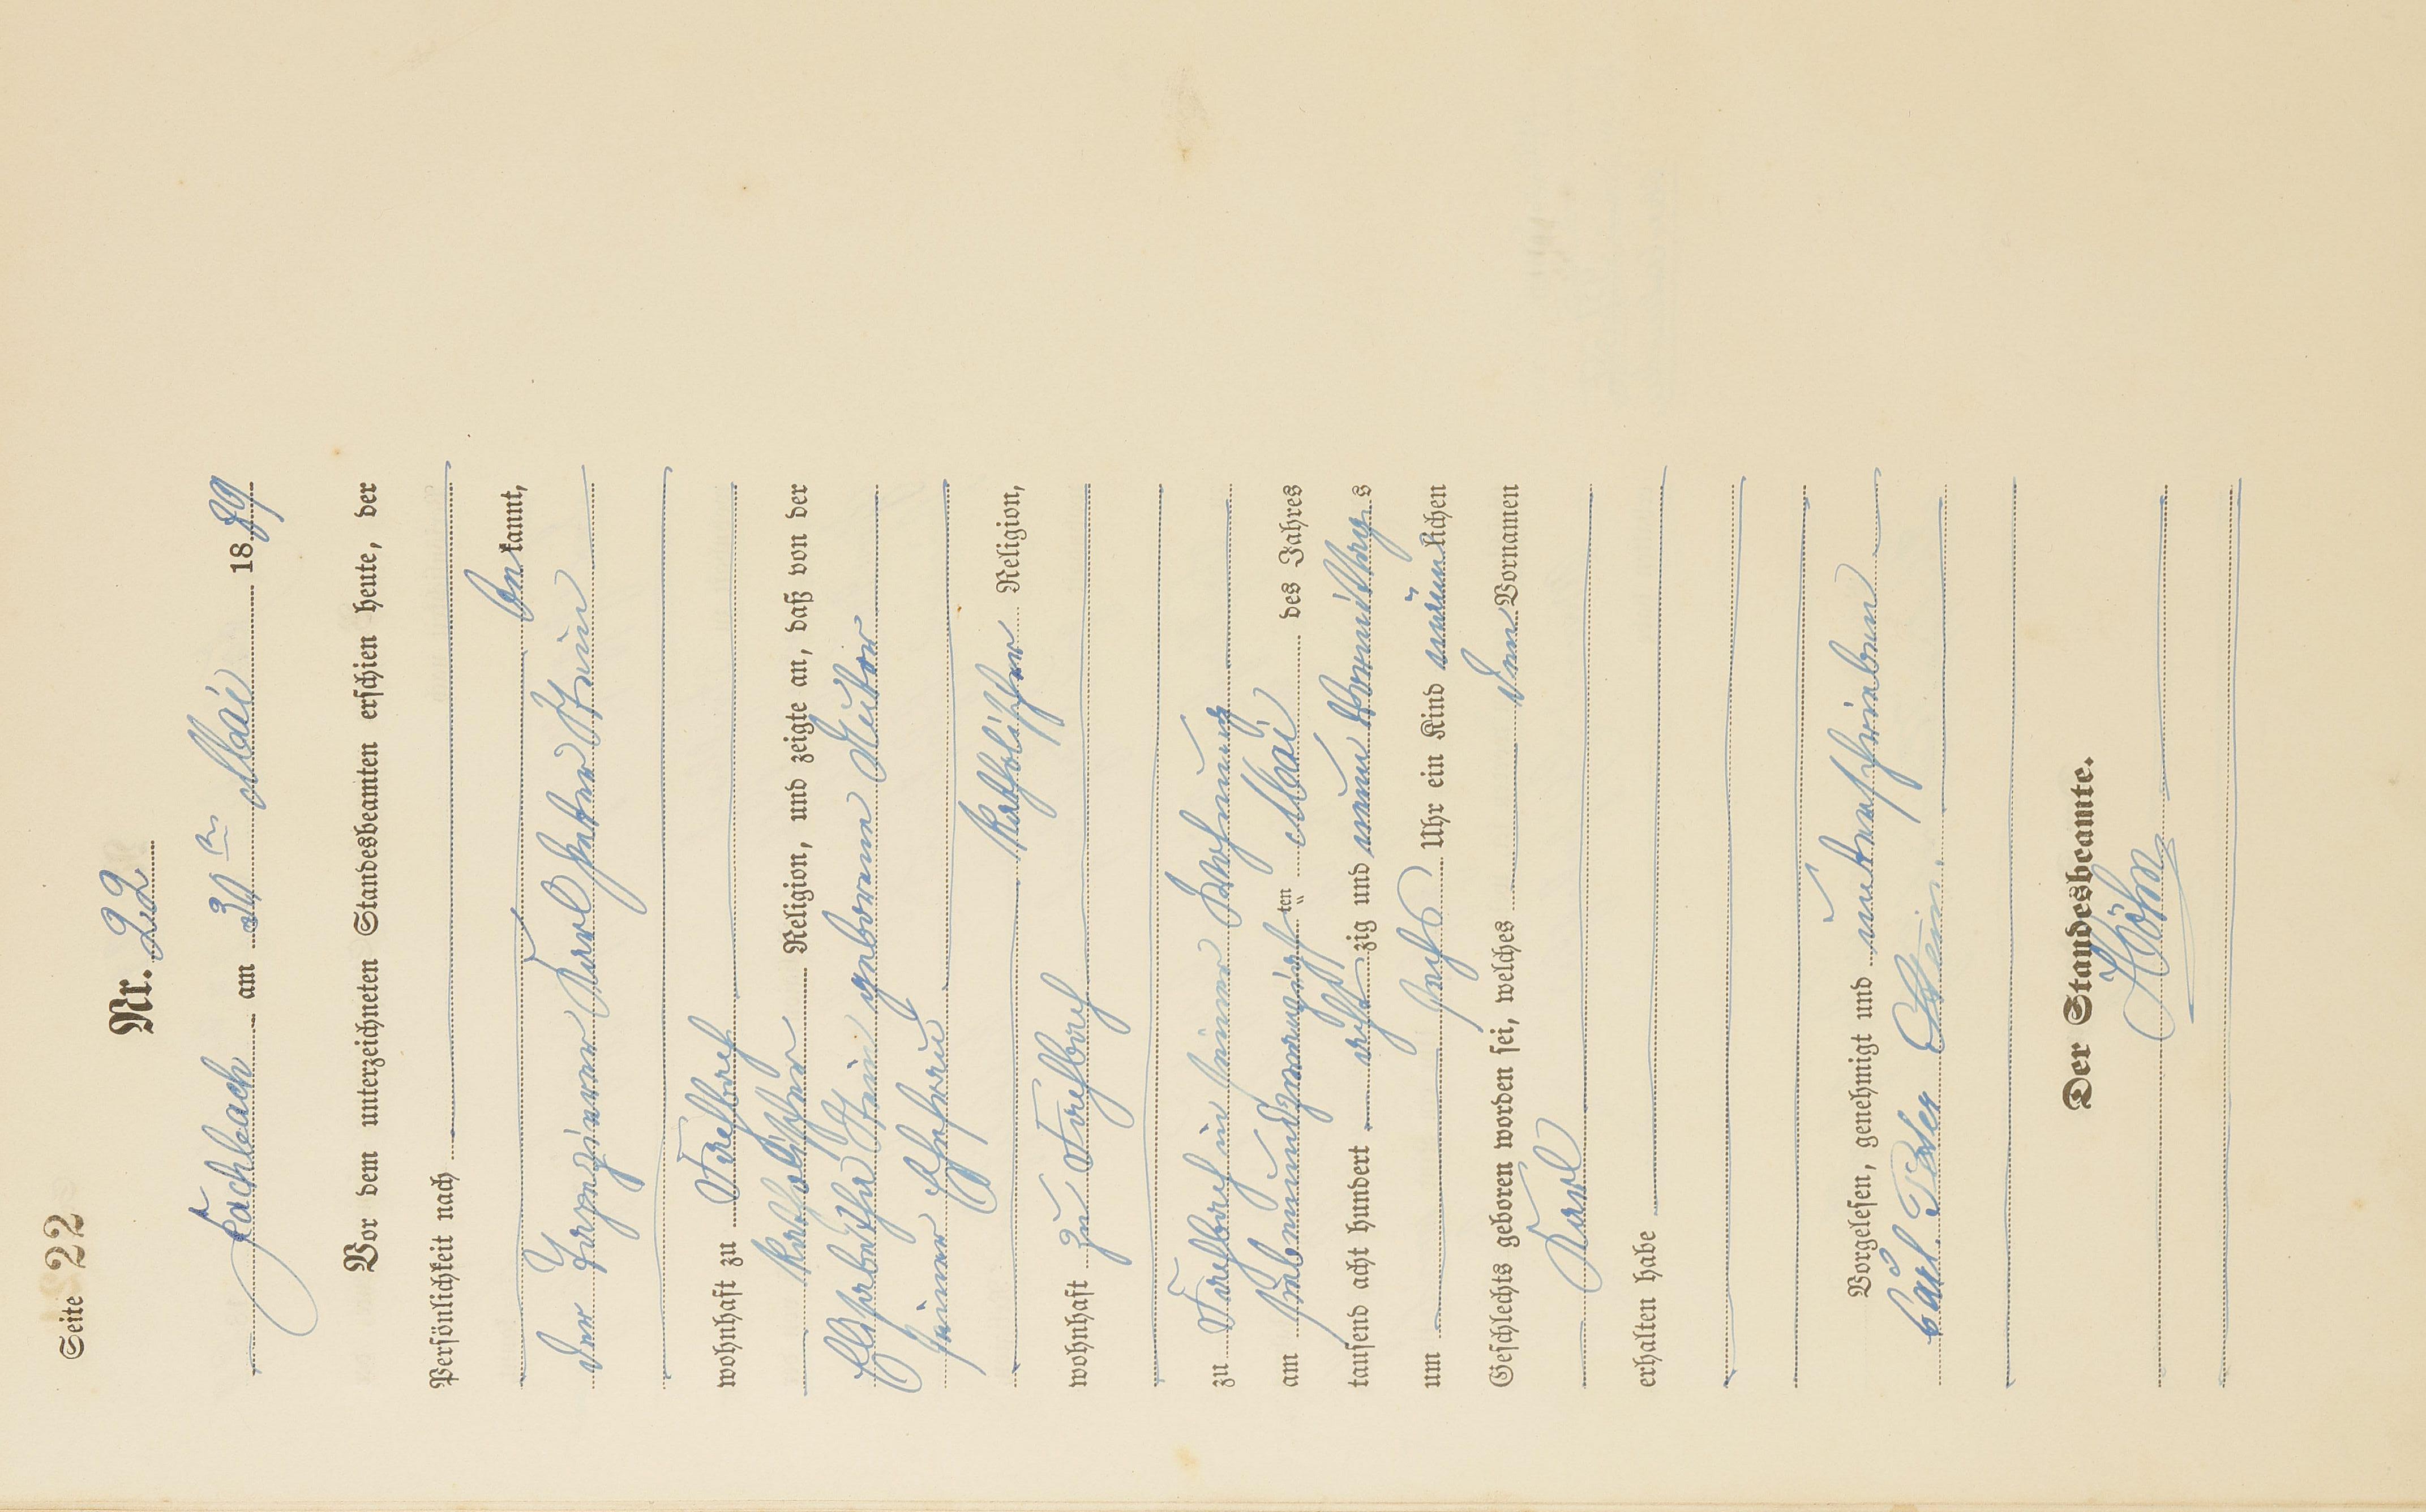 Seite 22
Nr. 22
Fachbach am 30ten Mai 1889
Vor dem unterzeichneten Standesbeamten erschien heute, der
Persönlichkeit nach
bekannt,
der Karl Peter Stein
wohnhaft zu Fachbach
katholischer Religion, und zeigte an, daß von der
Elisabetha Stein geborenen
seiner Ehefrau
katholischer Religion,
wohnhaft zu Fachbach
zu Fachbach in seiner Wohnung
am siebenundzwanzigsten Mai des Jahres
tausend acht hundert achtzig und neun Vormittags
um sechs Uhr ein Kind männlichen
Geschlechts geboren worden sei, welches den Vornamen
Karl
erhalten habe
Vorgelesen, genehmigt und unterschrieben
Carl Peter Stein
Der Standesbeamte.
Höhn